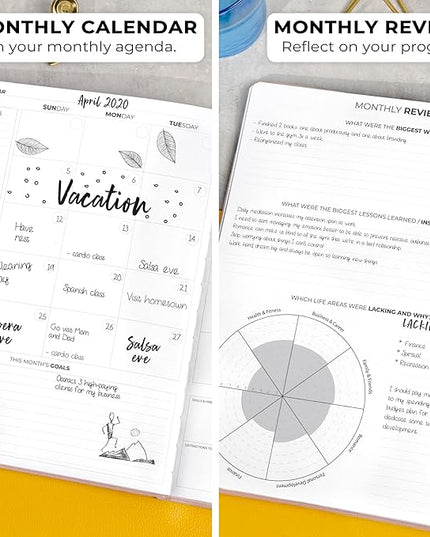 ONTHLY CALENDAR
n your monthly agenda.
April 2020
SUNDAY MONDAY TUESDAY
5 6 7
Vacation
12 13 14
Have
- cardio class
Salsa eve
20 21
Spanish class
Visit hometown
25 26 27
Go visit Mom
and Dad
- cardio class
Salsa
eve
THIS MONTH'S GOALS
clients for my business
MONTHLY REVIE
Reflect on your prog
MONTHLY REVIE
WHAT WERE THE BIGGEST W
- Finished 2 books, one about productivity and one about branding.
- Went to the gym 3x a week.
- Reorganized my closet
WHAT WERE THE BIGGEST LESSONS LEARNED / INS
Daily meditation increases my attention span at work.
I need to start managing my emotions better to be able to prevent reactive outbur
Stop worrying about things I can't control
Work hard, dream big and always be open to learning new things.
WHICH LIFE AREAS WERE LACKING AND WHY?
LACKIN
* Finance
* Spiritual
* Recreation
Health & Fitness
Business & Career
Family & Friends
Romance
Personal Development
Finance
I should pay mo
to my spending
budget plan for
dedicate some
development.